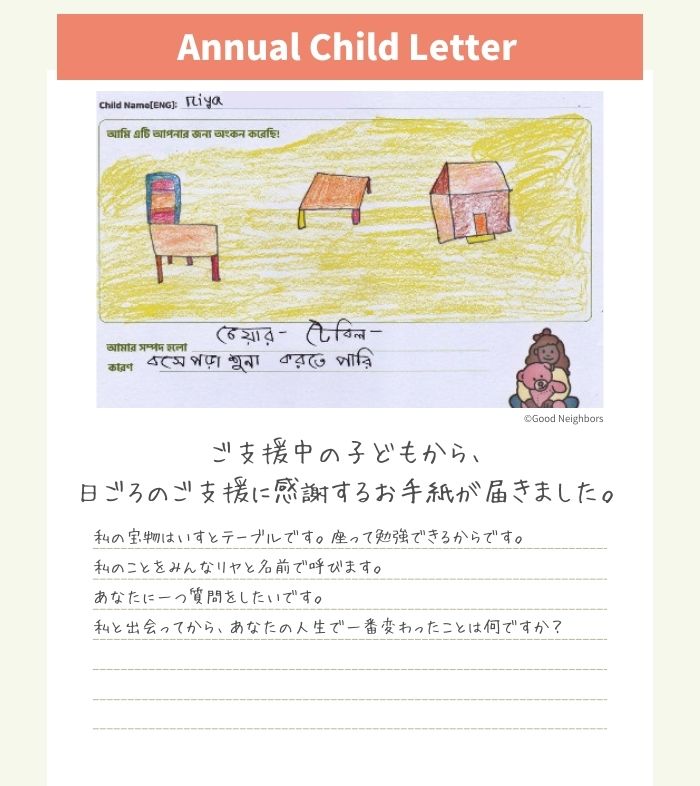 Annual Child Letter
Child Name[ENG]: Riya
আমি এটি আপনার জন্য অংকন করেছি!
আমার সম্পদ হলো চেয়ার - টেবিল -
কারণ বসে পড়া শুনা করতে পারি
©Good Neighbors
ご支援中の子どもから、
日ごろのご支援に感謝するお手紙が届きました。
私の宝物はいすとテーブルです。座って勉強できるからです。
私のことをみんなリヤと名前で呼びます。
あなたに一つ質問をしたいです。
私と出会ってから、あなたの人生で一番変わったことは何ですか？